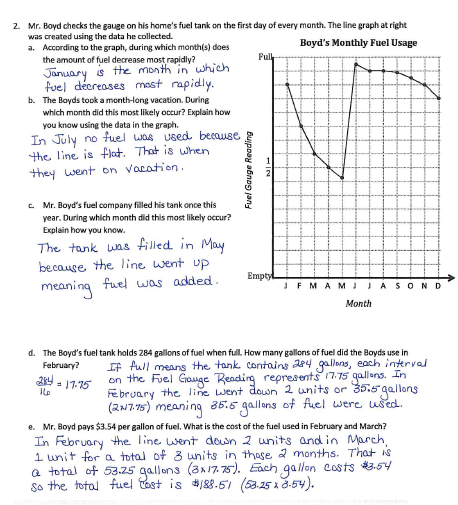 2. Mr. Boyd checks the gauge on his home's fuel tank on the first day of every month. The line graph at right
was created using the data he collected.
a. According to the graph, during which month(s) does
the amount of fuel decrease most rapidly?
January is the month in which
fuel decreases most rapidly.
b. The Boyds took a month-long vacation. During
which month did this most likely occur? Explain how
you know using the data in the graph.
In July no fuel was used because
the line is flat. That is when
they went on vacation.
c. Mr. Boyd's fuel company filled his tank once this
year. During which month did this most likely occur?
Explain how you know.
The tank was filled in May
because the line went up
meaning fuel was added.
Boyd's Monthly Fuel Usage
Full
Fuel Gauge Reading
1
2
Empty
J F M A M J J A S O N D
Month
d. The Boyd's fuel tank holds 284 gallons of fuel when full. How many gallons of fuel did the Boyds use in
February?
284
16
= 17.75
If full means the tank contains 284 gallons, each interval
on the Fuel Gauge Reading represents 17.75 gallons. In
February the line went down 2 units or 35.5 gallons
(2x17.75) meaning 35.5 gallons of fuel were used.
e. Mr. Boyd pays $3.54 per gallon of fuel. What is the cost of the fuel used in February and March?
In February the line went down 2 units and in March,
1 unit for a total of 3 units in these 2 months. That is
a total of 53.25 gallons (3x17.75). Each gallon costs $3.54
So the total fuel cost is $188.51 (53.25 x 3.54).